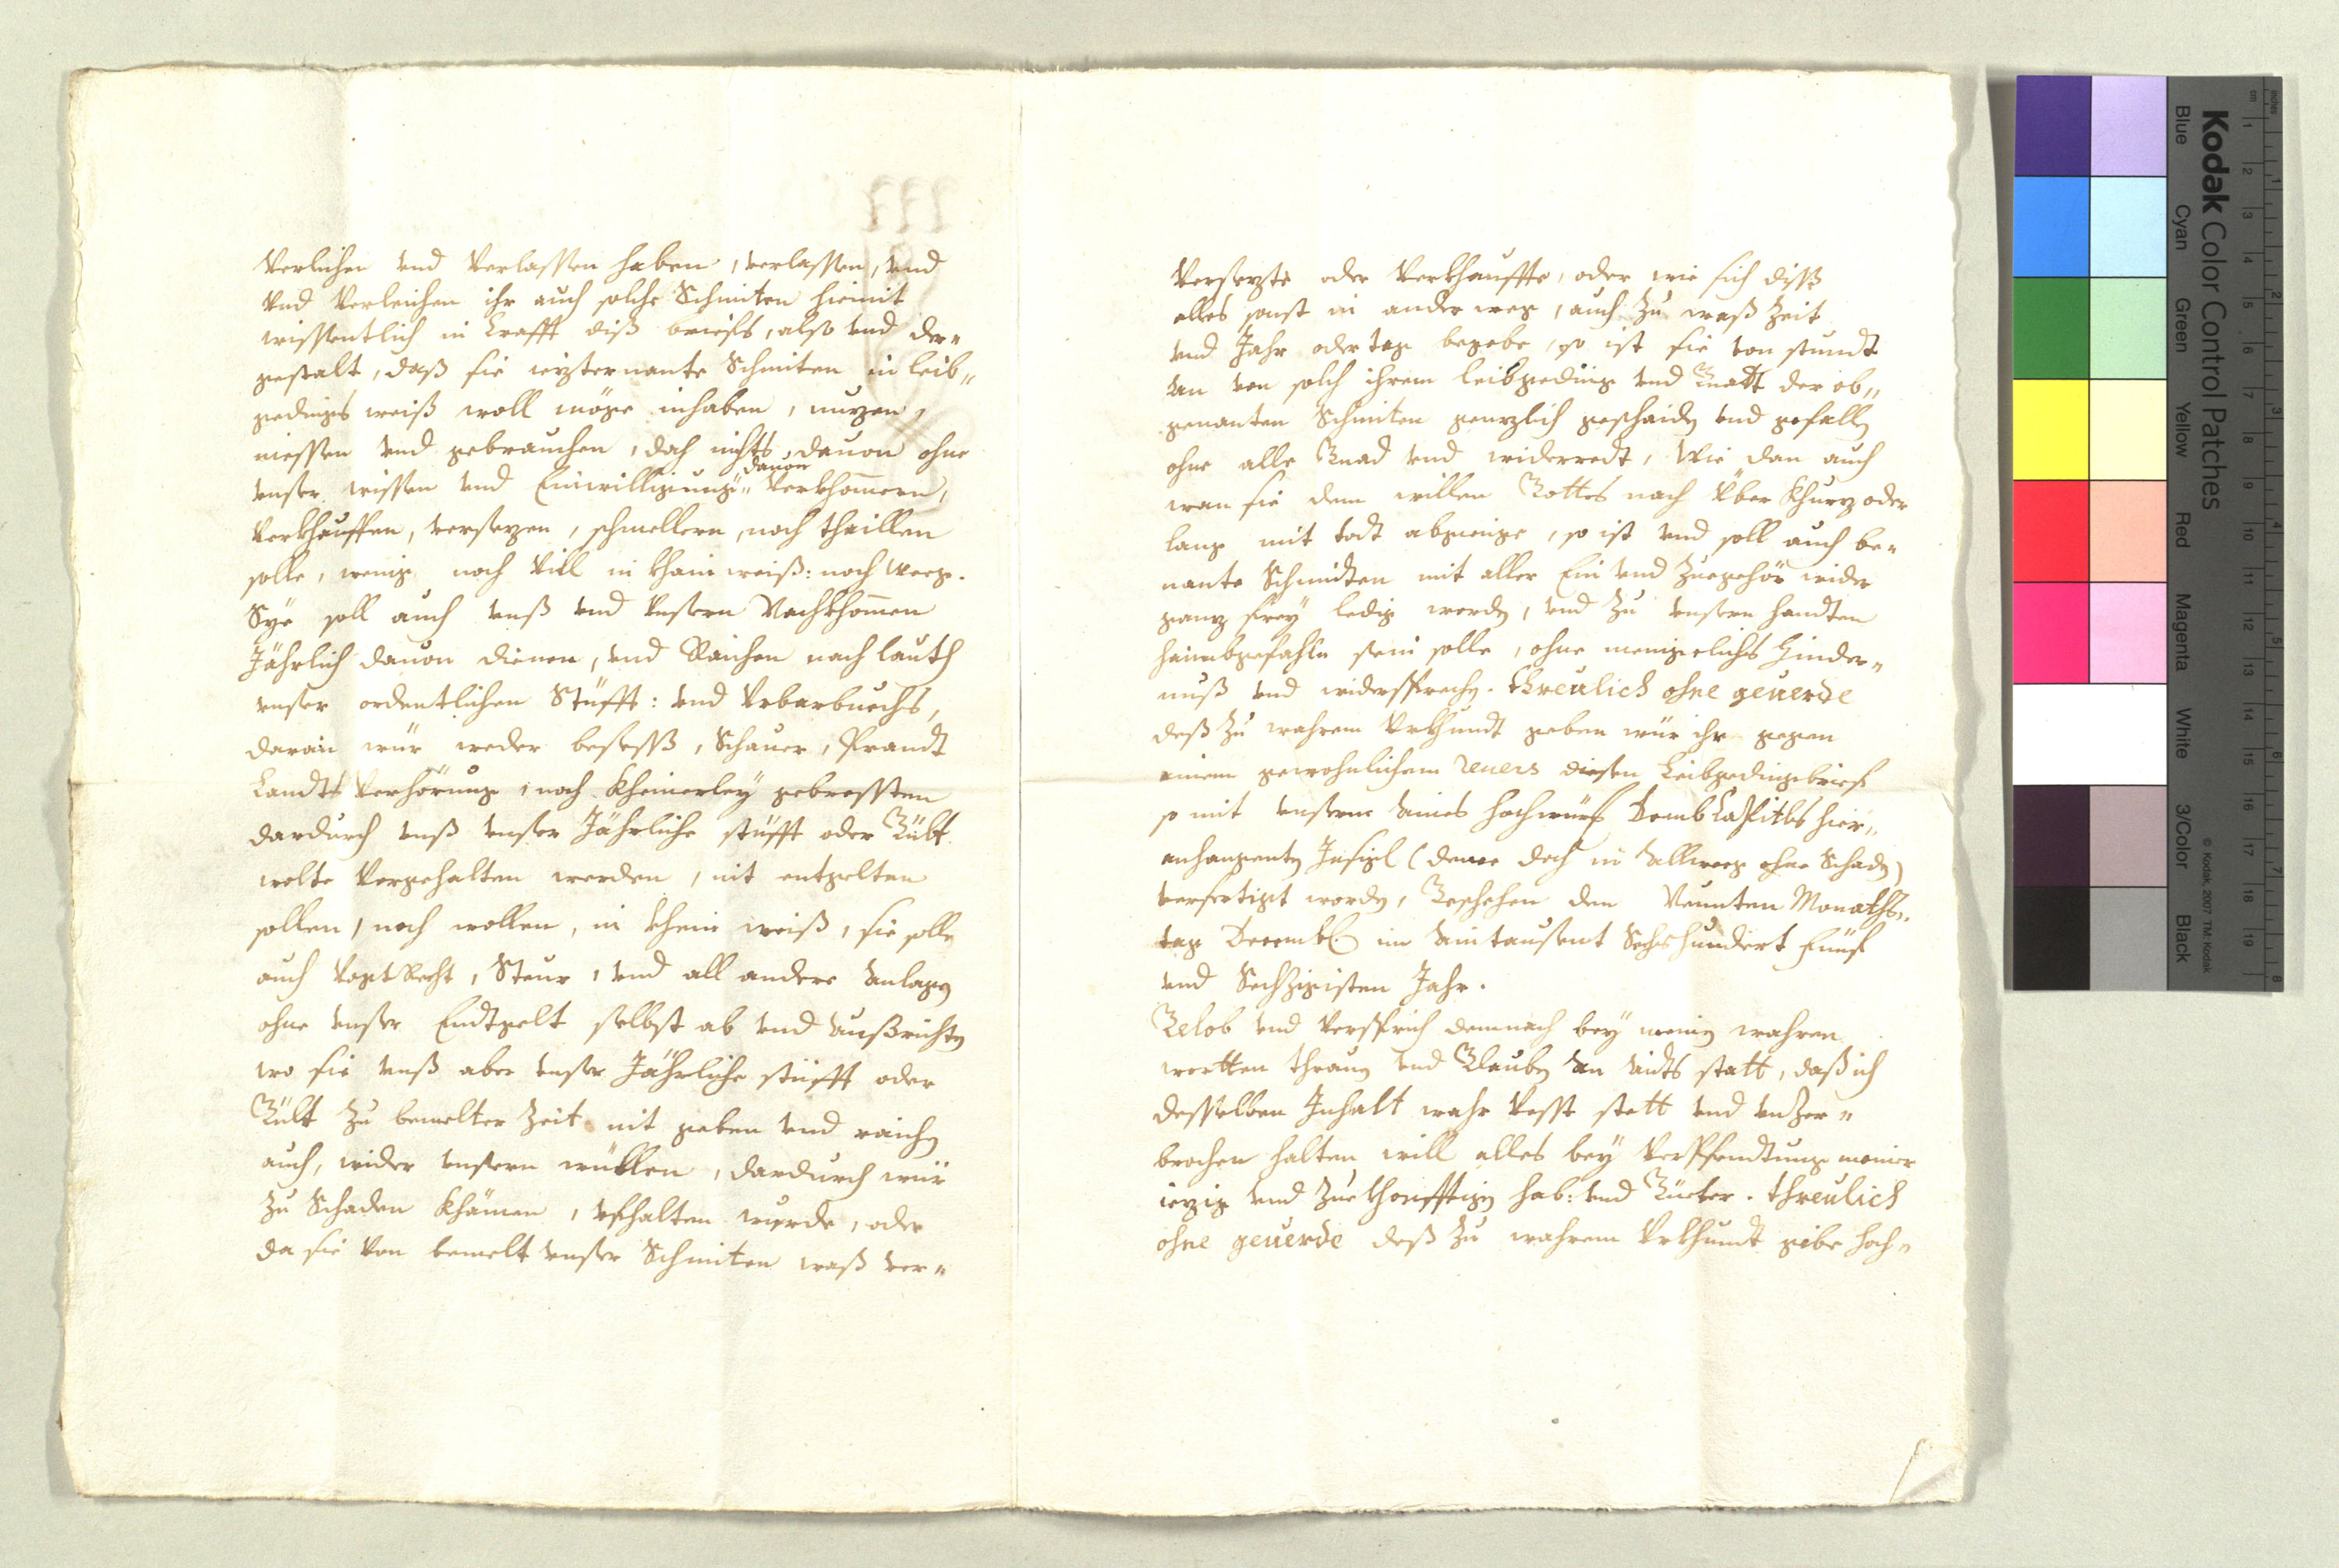 Verlichen vnd Verlassen haben, verlassen, vnd
vnd Verleichen ihr auch solche Schmiten hiemit
wissentlich in Krafft diß briefs, also vnd der„
gestalt, daß sie iezternante Schmiten in leib„
gedings weiß woll möge inhaben, nuzen,
niessen vnd gebrauchen, doch nichts dauon ohne
vnser wissen vnd Einwilligung dauon Verkhommern,
Verkhauffen, versezen, schmellern, noch thaillen
solle, wenig noch Vill in khain weiß: noch weeg.
Sye soll auch vnß vnd vnsern Nachkhommen
Jährlich dauon dienen, vnd Raichen nach lauth
vnser ordentlichen Stüfft: vnd Vrbarbuechs,
daran wür weder besesß, Schauer, Prandt
Landts Verhörung, noch kheinerley gebressten
dardurch vnß vnser Jährliche stüfft oder Gült
wolte Vorgehalten werden, nit entgelten
sollen, noch wollen, in khein weiß, sie solle
auch Vogt Recht, Steur, vnd all andere Anlagen
ohne vnser Endtgelt selbst ab vnd außrichten
wo sie vnß aber vnser Jährliche stüfft oder
Gült zu bemelter Zeit nit geben vnd raichen
auch, wider vnsern wüllen, dardurch wür
zu Schaden khämen, Vfhalten wurde, oder
da sie Von bemelt vnser Schmiten waß ver„
Versezte oder Verkhauffte, oder wie sich diß
alles sonst in ander weg, auch zu waß Zeit
vnd Jahr oder tag begebe, so ist sie von stundt
an von solch ihrem leibgeding vnd Gnadt der ob„
genanten Schmiten genzlich geschaiden vnd gefallen
ohne alle Gnad vnd widerredt, Wie dan auch
wan sie dem willen Gottes nach Über khurz oder
lang mit todt abgienge, so ist vnd soll auch be„
nante Schmidten mit aller Ein vnd Zuegehör wider
ganz frey ledig worden, vnd zu vnsern handten
haimbgefahln sein solle, ohne menigelichs Hinder„
nuß vnd widersprechen. threulich ohne geuerde
deß zu wahrem Vrkhundt geben wür ihr gegen
einem gewohnlichem reuers diesen Leibgedingsbrief
so mit vnserm aines hochwürd. Domb Capitls hier„
anhangenten Insigl (deme doch in Allweeg ohne Schaden)
verfertigt worden, Geschehen den Neunten Monaths„
tag Decemb. im Aintausent Sechshundert Fünf
vnd Sechzigisten Jahr.
Gelob vnd Versprich demnach bey meinen wahren
wortten threuen vnd Glauben an Aidts statt, daß ich
desselben Inhalt wahr Vesst stett vnd vnzer„
brochen halten will alles bey Verpfendtung meiner
iezig vnd Zuekhonfftigen hab: vnd Güeter. threulich
ohne geuerde deß zu wahrem Vrkhundt gibe hoch„
Kodak Color Control Patches
Blue Cyan Green Yellow Red Magenta White 3/Color Black
© Kodak, 2007 TM: Kodak